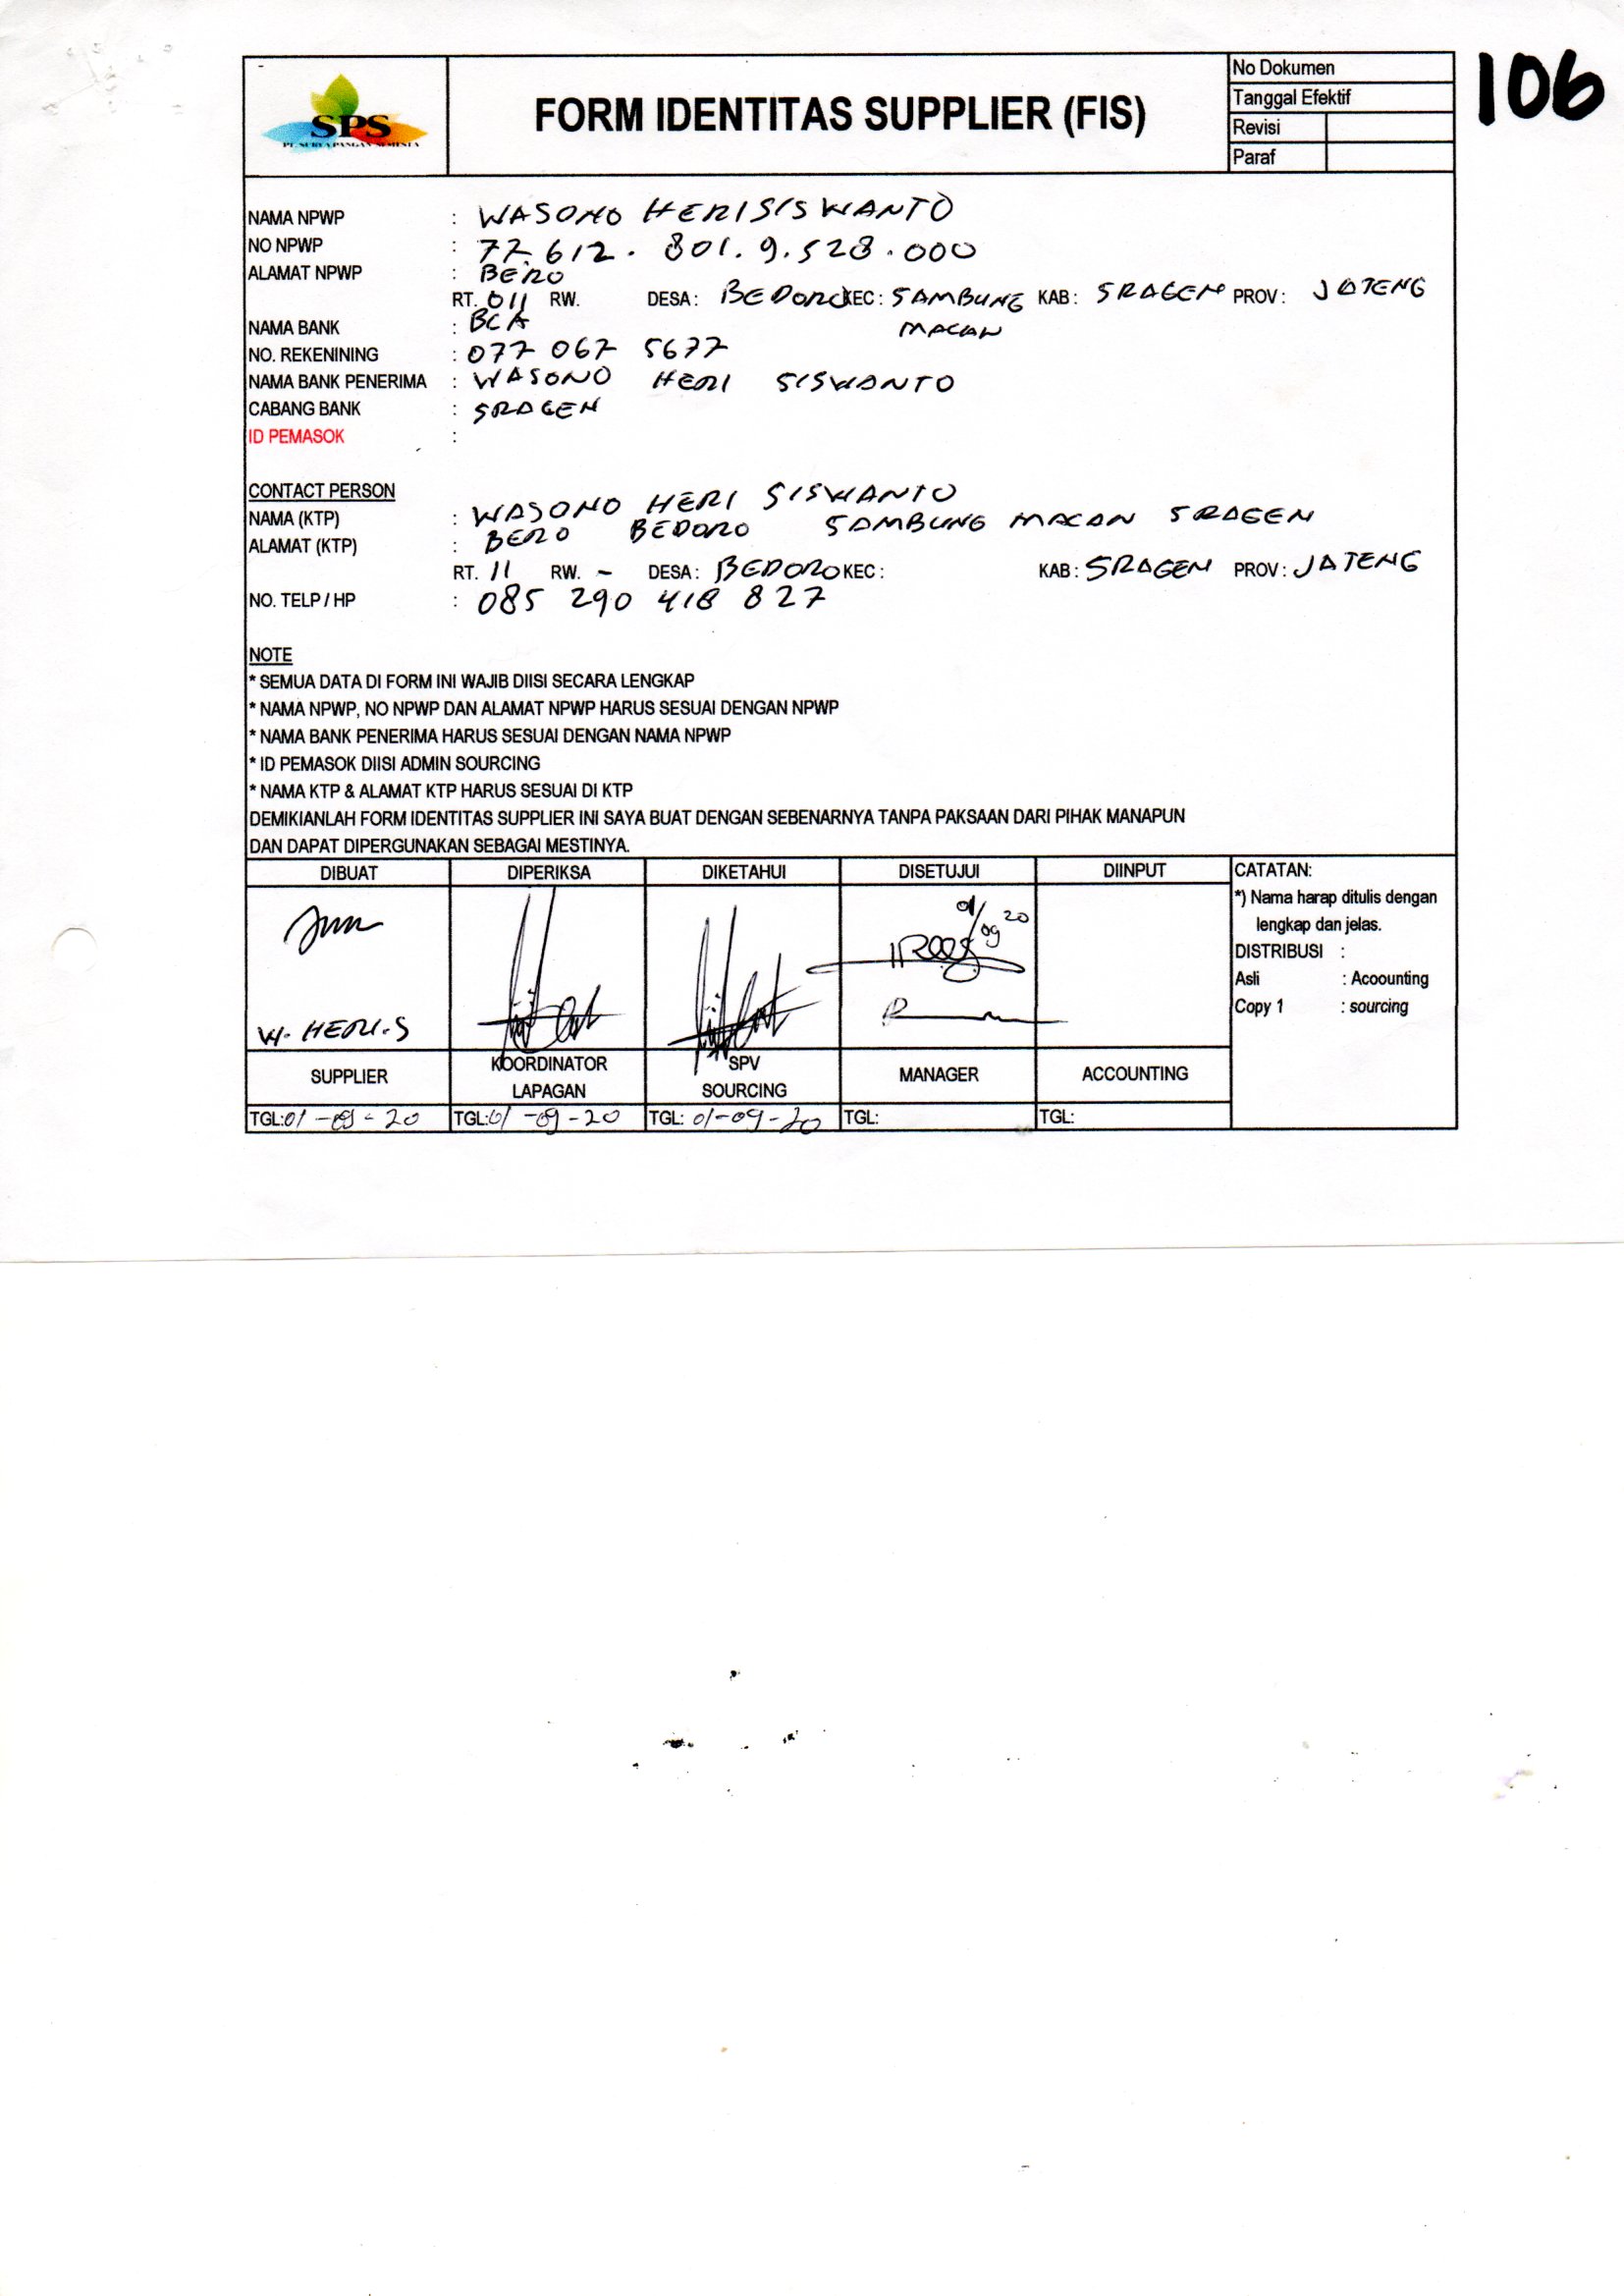 106
SPS
PT. SURYA PANGAN SEMESTA
FORM IDENTITAS SUPPLIER (FIS)
No Dokumen
Tanggal Efektif
Revisi
Paraf
NAMA NPWP : WASONO HERISISWANTO
NO NPWP : 77.612.801.9.528.000
ALAMAT NPWP : BERO
RT. 011 RW. DESA : BEDORO KEC : SAMBUNG MACAN KAB : SRAGEN PROV : JATENG
NAMA BANK : BCA
NO. REKENINING : 077 067 5677
NAMA BANK PENERIMA : WASONO HERI SISWANTO
CABANG BANK : SRAGEN
ID PEMASOK :
CONTACT PERSON
NAMA (KTP) : WASONO HERI SISWANTO
ALAMAT (KTP) : BERO BEDORO SAMBUNG MACAN SRAGEN
RT. 11 RW. - DESA : BEDORO KEC : KAB : SRAGEN PROV : JATENG
NO. TELP / HP : 085 290 418 827
NOTE
* SEMUA DATA DI FORM INI WAJIB DIISI SECARA LENGKAP
* NAMA NPWP, NO NPWP DAN ALAMAT NPWP HARUS SESUAI DENGAN NPWP
* NAMA BANK PENERIMA HARUS SESUAI DENGAN NAMA NPWP
* ID PEMASOK DIISI ADMIN SOURCING
* NAMA KTP & ALAMAT KTP HARUS SESUAI DI KTP
DEMIKIANLAH FORM IDENTITAS SUPPLIER INI SAYA BUAT DENGAN SEBENARNYA TANPA PAKSAAN DARI PIHAK MANAPUN
DAN DAPAT DIPERGUNAKAN SEBAGAI MESTINYA.
DIBUAT DIPERIKSA DIKETAHUI DISETUJUI DIINPUT CATATAN:
*) Nama harap ditulis dengan
lengkap dan jelas.
DISTRIBUSI :
Asli : Acoounting
Copy 1 : sourcing
01/09 20
W. HERI.S
SUPPLIER KOORDINATOR LAPAGAN SPV SOURCING MANAGER ACCOUNTING
TGL:01-09-20 TGL:01-09-20 TGL: 01-09-20 TGL: TGL: